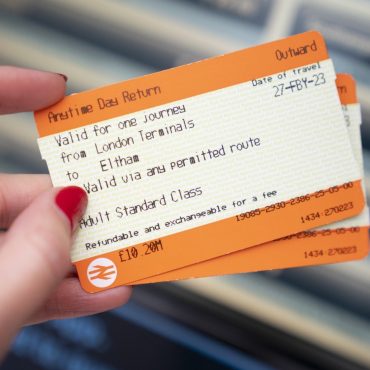 Outward
Anytime Day Return
Date of travel
27-FBY-23
Valid for one journey
from London Terminals
to Eltham
Valid via any permitted route
Adult Standard Class
Refundable and exchangeable for a fee
19085-2930-2386-25-05-00
1434-270223
£10.20M
25-05-00
1434-270223